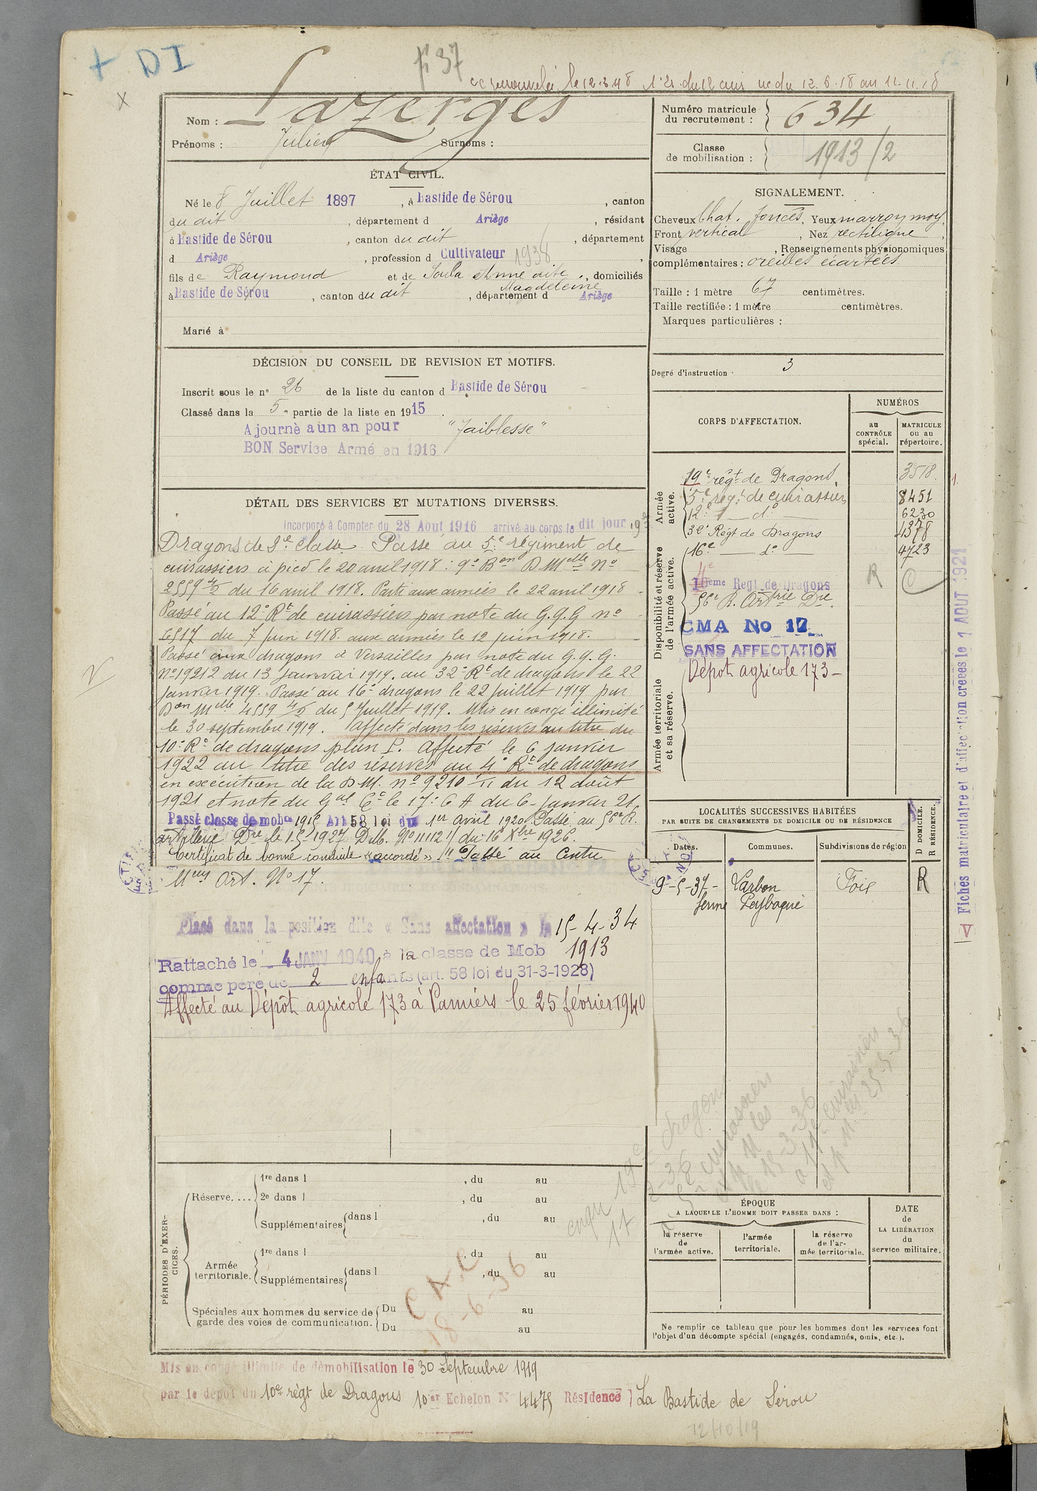 + DI
fi 37
X
Nom : Lazerges
Prénoms : Julien Surnoms :
Numéro matricule du recrutement : 634
Classe de mobilisation : 1913/2
ÉTAT CIVIL.
Né le 8 Juillet 1897, à Bastide de Sérou, canton
du dit, département d Ariège, résidant
à Bastide de Sérou, canton du dit, département
d Ariège, profession d Cultivateur 1938
fils de Raymond et de Soula Anne dite Magdeleine, domiciliés
à Bastide de Sérou, canton du dit, département d Ariège
Marié à
SIGNALEMENT.
Cheveux chat. foncés. Yeux marron moy.
Front vertical, Nez rectiligne
Visage , Renseignements physionomiques
complémentaires : oreilles écartées
Taille : 1 mètre 67 centimètres.
Taille rectifiée : 1 mètre centimètres.
Marques particulières :
Degré d'instruction : 3
DÉCISION DU CONSEIL DE REVISION ET MOTIFS.
Inscrit sous le n° 26 de la liste du canton d Bastide de Sérou
Classé dans la 5e partie de la liste en 1915.
Ajourné à un an pour "Faiblesse"
BON Service Armé en 1916
DÉTAIL DES SERVICES ET MUTATIONS DIVERSES.
Incorporé à Compter du 28 Aout 1916 arrivé au corps le dit jour 19e
Dragons de 2e classe. Passé au 5e régiment de
cuirassiers à pied le 20 avril 1918 : 9e Bon D Melle No
du 16 avril 1918. Parti aux armées le 22 avril 1918
Passé au 12e Rt de cuirassiers par note du G.Q.G no
6517 du 7 juin 1918. aux armées le 12 juin 1918.
Passé aux dragons à Versailles par note du G.Q.G.
No 19212 du 13 Janvier 1919. au 32e Rt de dragons le 22
janvier 1919. Passé au 16e dragons le 22 juillet 1919 par
Don Melle 4559 du 5 Juillet 1919. Mis en congé illimité
le 30 septembre 1919. Affecté dans les réserves au titre du
10e Rt de dragons Affecté le 6 janvier
1922 au titre des réserves au 4e Rt de dragons
en exécution de la D.M. no 9210 du 12 août
1921 et note du Gal Ct le 17e C A du 6 Janvier 21.
Passé classe de mobon 1915 Art 58 loi du 1er avril 1920. Passé au 56e R.
artillerie Dre le 1.5.1927 Déb. No 11112 du 16 Xbre 1926.
Certificat de bonne conduite "accordé". Passé au Centre
Mens Art. No 17.
Placé dans la position dite « Sans affectation » le 15-4-34
Rattaché le 4 JANV 1940 à la classe de Mob 1913
comme père de 2 enfants (art. 58 loi du 31-3-1928)
Affecté au Dépôt agricole 173 à Pamiers le 25 février 1940
CORPS D'AFFECTATION.
NUMÉROS
au CONTRÔLE spécial.
MATRICULE ou au répertoire.
Armée active.
19e régt de Dragons. 3518
5e régt de cuirassiers 8451
12e d° 6230
32e Régt de Dragons 4378
16e d° 4723
Disponibilité et réserve de l'armée active.
4e
10eme Regt de Dragons R C
56e R. Artrie Dre
CMA No 17
SANS AFFECTATION
Dépôt agricole 173
Armée territoriale et sa réserve.
LOCALITÉS SUCCESSIVES HABITÉES
PAR SUITE DE CHANGEMENTS DE DOMICILE OU DE RÉSIDENCE
Dates. Communes. Subdivisions de région D DOMICILE. R RÉSIDENCE.
9-5-37 Larbon Foix R
ferme Peybaqué
Fiches matriculaire et d'affectation créées le 1 AOUT 1921
PÉRIODES D'EXERCICES.
Réserve. ...
1re dans l , du au
2e dans l , du au
Supplémentaires dans l , du au
Armée territoriale.
1re dans l , du au
Supplémentaires dans l , du au
Spéciales aux hommes du service de garde des voies de communication.
Du au
Du au
18-6-36
ÉPOQUE
A LAQUELLE L'HOMME DOIT PASSER DANS :
la réserve de l'armée active.
l'armée territoriale.
la réserve de l'armée territoriale.
DATE de LA LIBÉRATION du service militaire.
Ne remplir ce tableau que pour les hommes dont les services font
l'objet d'un décompte spécial (engagés, condamnés, omis, etc.).
Mis en congé illimité de démobilisation le 30 Septembre 1919
par le dépôt du 10e régt de Dragons 10e Echelon No 4475 Résidence La Bastide de Sérou
12/10/19